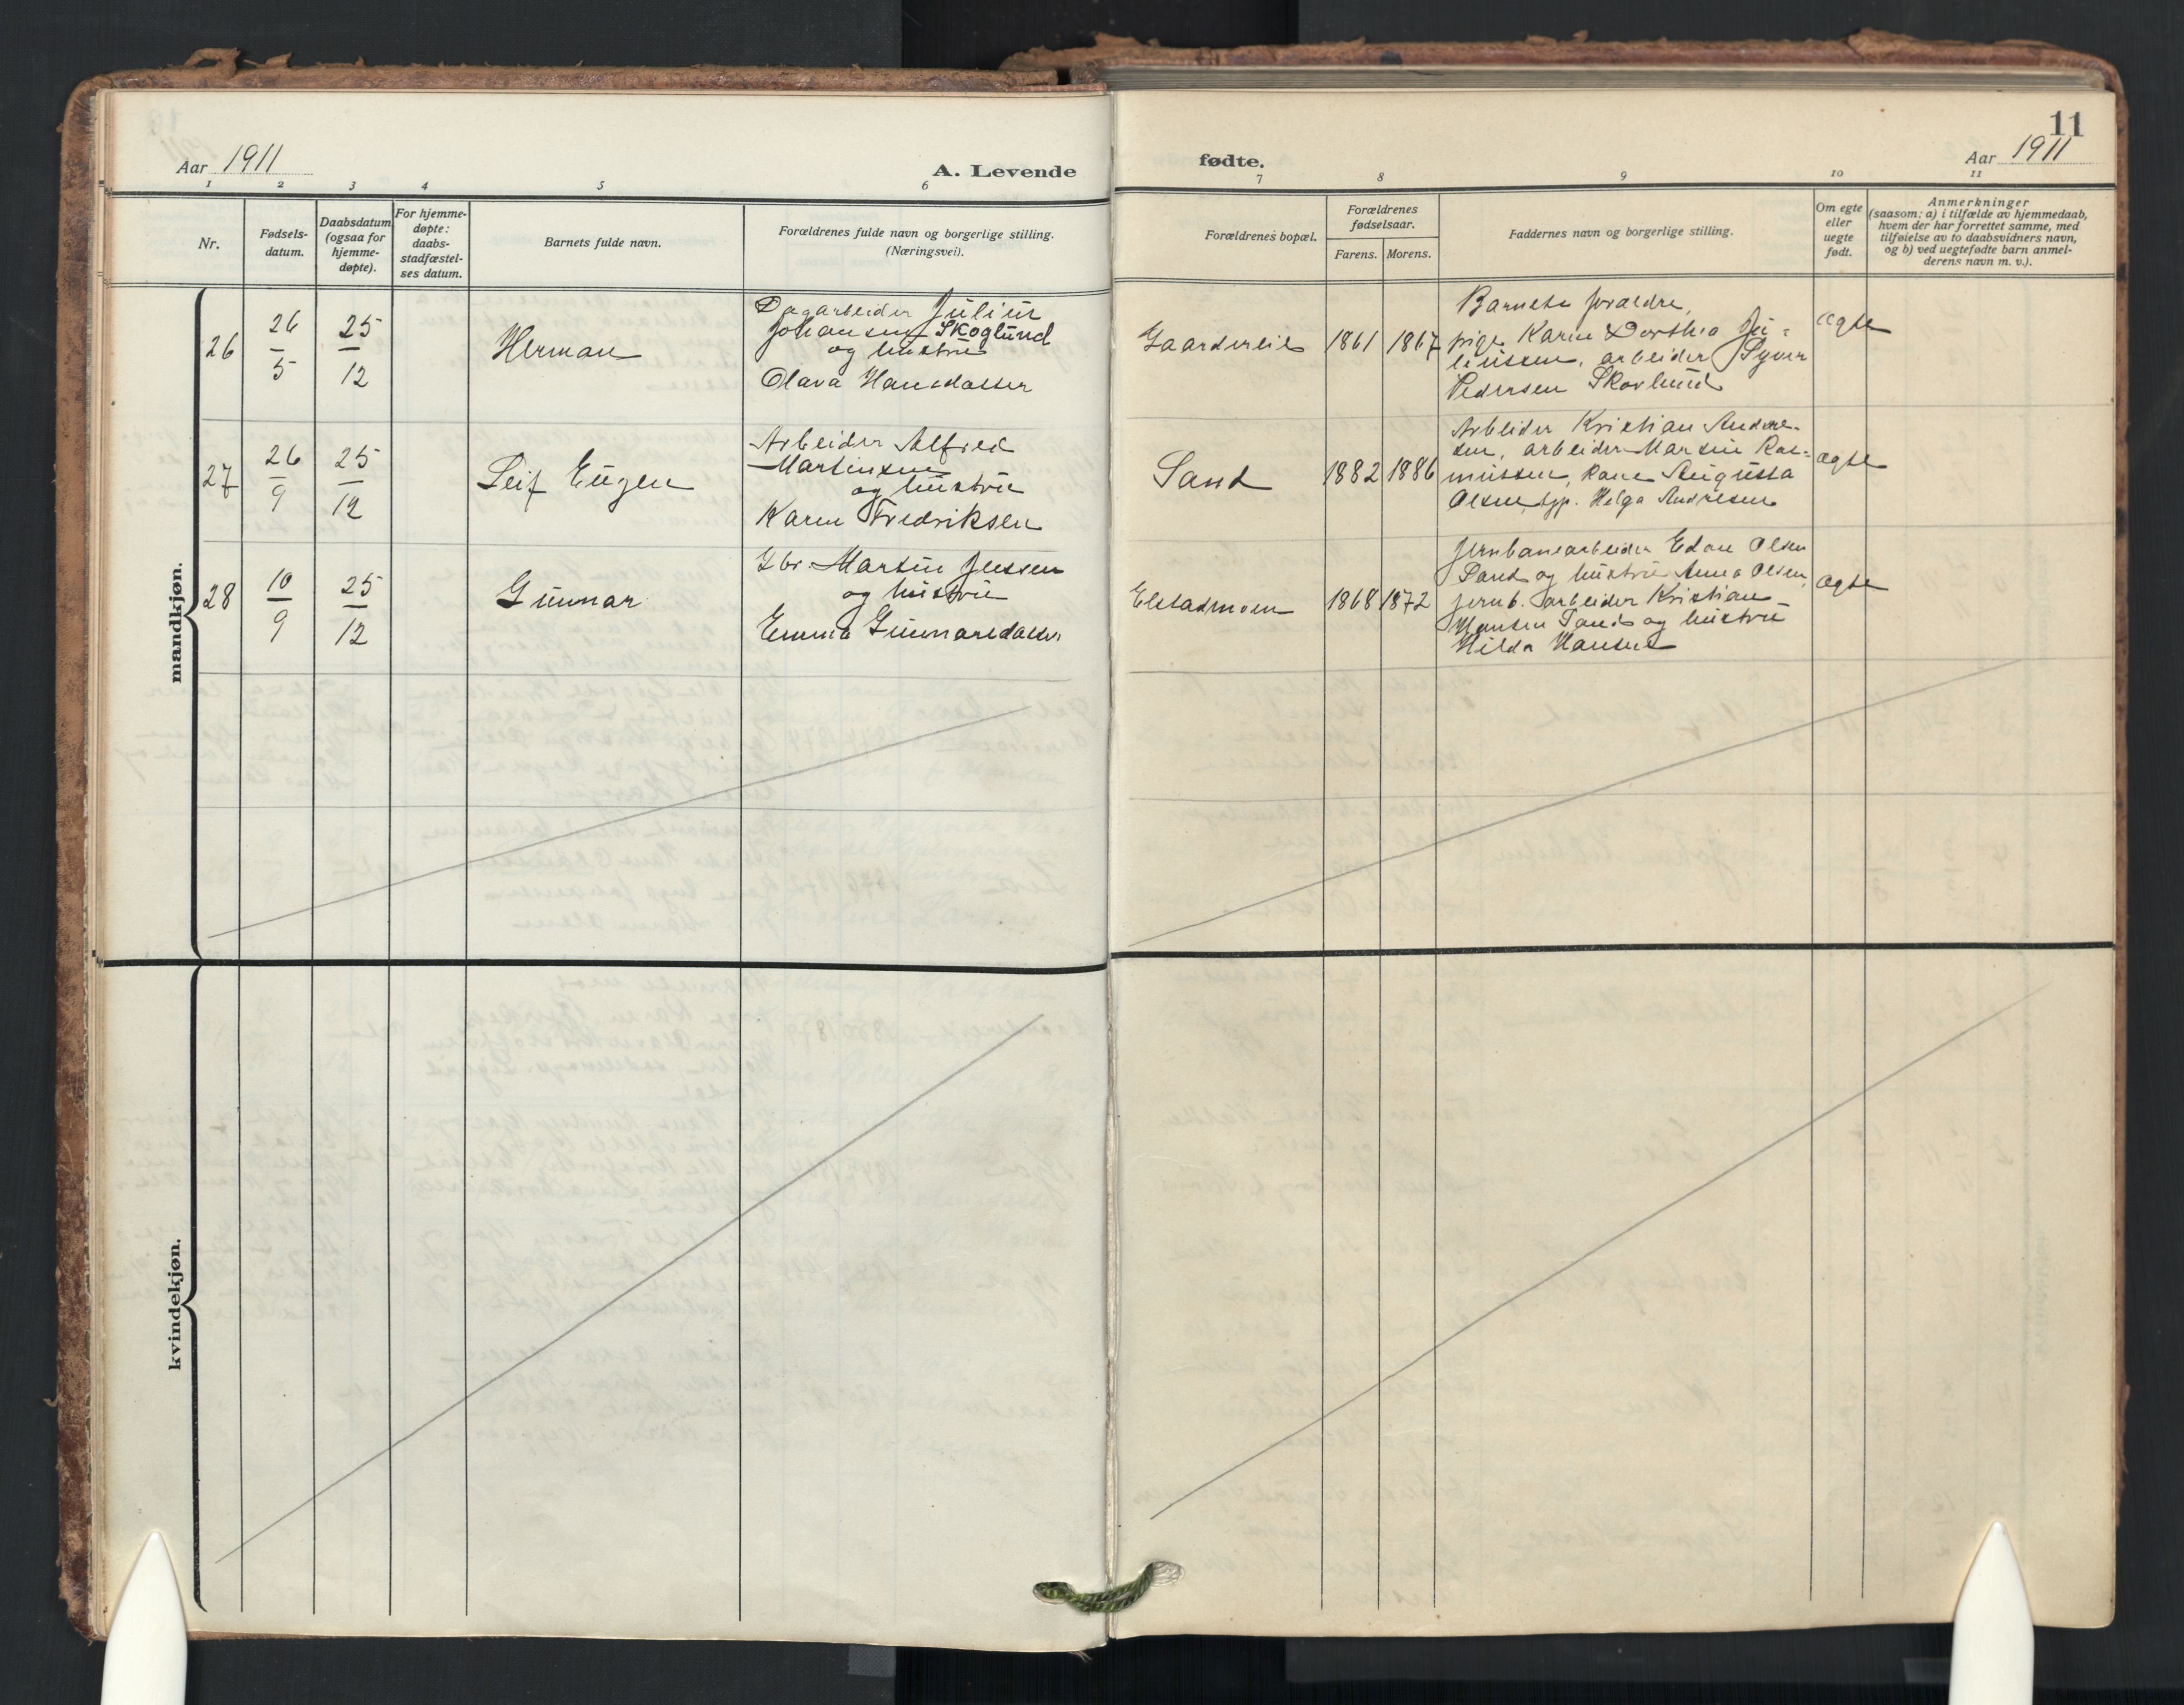 11
Aar 1911
A. Levende
fødte.
Aar 1911
1 2 3 4 5 6 7 8 9 10 11
Nr.
Fødsels-
datum.
Daabsdatum
(ogsaa for
hjemme-
døpte).
For hjemme-
døpte:
daabs-
stadfæstel-
ses datum.
Barnets fulde navn.
Forældrenes fulde navn og borgerlige stilling.
(Næringsvei).
Forældrenes bopæl.
Forældrenes
fødselsaar.
Farens. Morens.
Faddernes navn og borgerlige stilling.
Om egte
eller
uegte
født.
Anmerkninger
(saasom: a) i tilfælde av hjemmedaab,
hvem der har forrettet samme, med
tilføielse av to daabsvidners navn,
og b) ved uegtefødte barn anmel-
derens navn m. v.).
mandkjøn.
26
26/5
25/12
Herman
Dagarbeider Julius
Johansen Skoglund
og hustru
Olava Hansdatter
Gaardereie
1861
1867
Barnets forældre,
pige Karen Dorthea Ju-
liussen, arbeider Syver
Pedersen Skovlund
ægte
27
26/9
25/12
Leif Eugen
Arbeider Alfred
Martinsen
og hustru
Karen Fredriksen
Sand
1882
1886
Arbeider Kristian Andre-
sen, arbeider Martin Ras-
mussen, kone Augusta
Olsen, syp. Helga Andresen
ægte
28
10/9
25/12
Gunnar
Gbr. Martin Jenssen
og hustru
Emma Gunnarsdatter
Elstadmoen
1868
1872
Jernbanearbeider Edon Olsen
Sand og hustru Anna Olsen,
jernb. arbeider Kristian
Hansen Sand og hustru
Hilda Hansen
ægte
kvindekjøn.